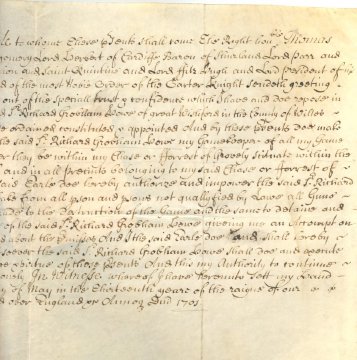 to whome These p'sents shall come The Right hon:ble Thomas
gomery Lord Herbert of Cardiffe Baron of Shurland Lord parr and
ion and Saint Quintine and Lord ffitz Hugh and Lord president of
d of the most Noble Order of the Garter Knight Sendeth greeting
out of the speciall trust & confidence which I have and doe repose in
d S:r Richard Grobham Howe of great Wishford in the County of Wiltes
ve ordained constituted & appointed And by these p'sents doe make
the said S:r Richard Grobham Howe my Gamekeeper of all my Game
er they be within my Chase or fforrest of Grovely Scituate within the
and in all Precincts belonging to my said Chase or fforrest of
said Earle doe hereby authorize and impower the said S:r Richard
take from all p'son and p'sons not quallifyed by Lawe all Guns
made to the Destruction of the Game and the same to detaine and
of the said S:r Richard Grobham Howe giveing me an Account
about the p'misses And I the said Earle doe and shall hereby
soever the said S:r Richard Grobham Howe shall doe and execute
by vertue of these p'sents And this my Authority to continue
only In Witness whereof I have hereunto Sett my hand
y of May in the Thirteenth yeare of the raigne of our
d over England &c Annoq Dni 1701